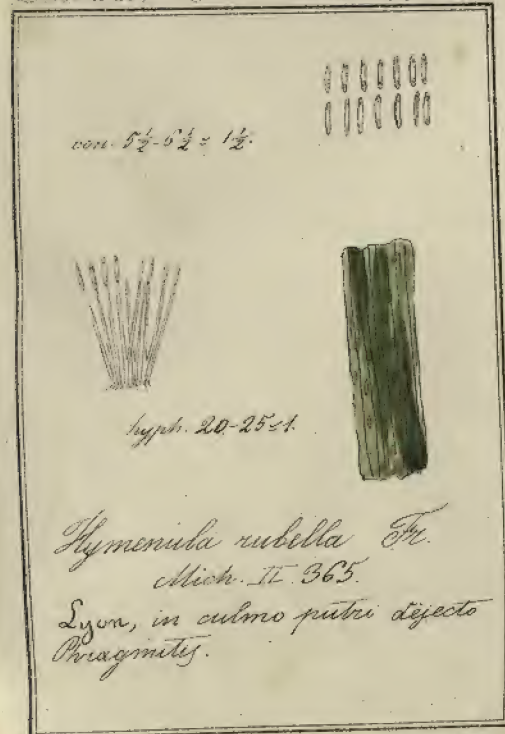 con. 5½-6½ = 1½.
hyph. 20-25=1.
Hymenula rubella Fr.
Mich. II. 365.
Lyon, in culmo putri dejecto
Phragmitis.